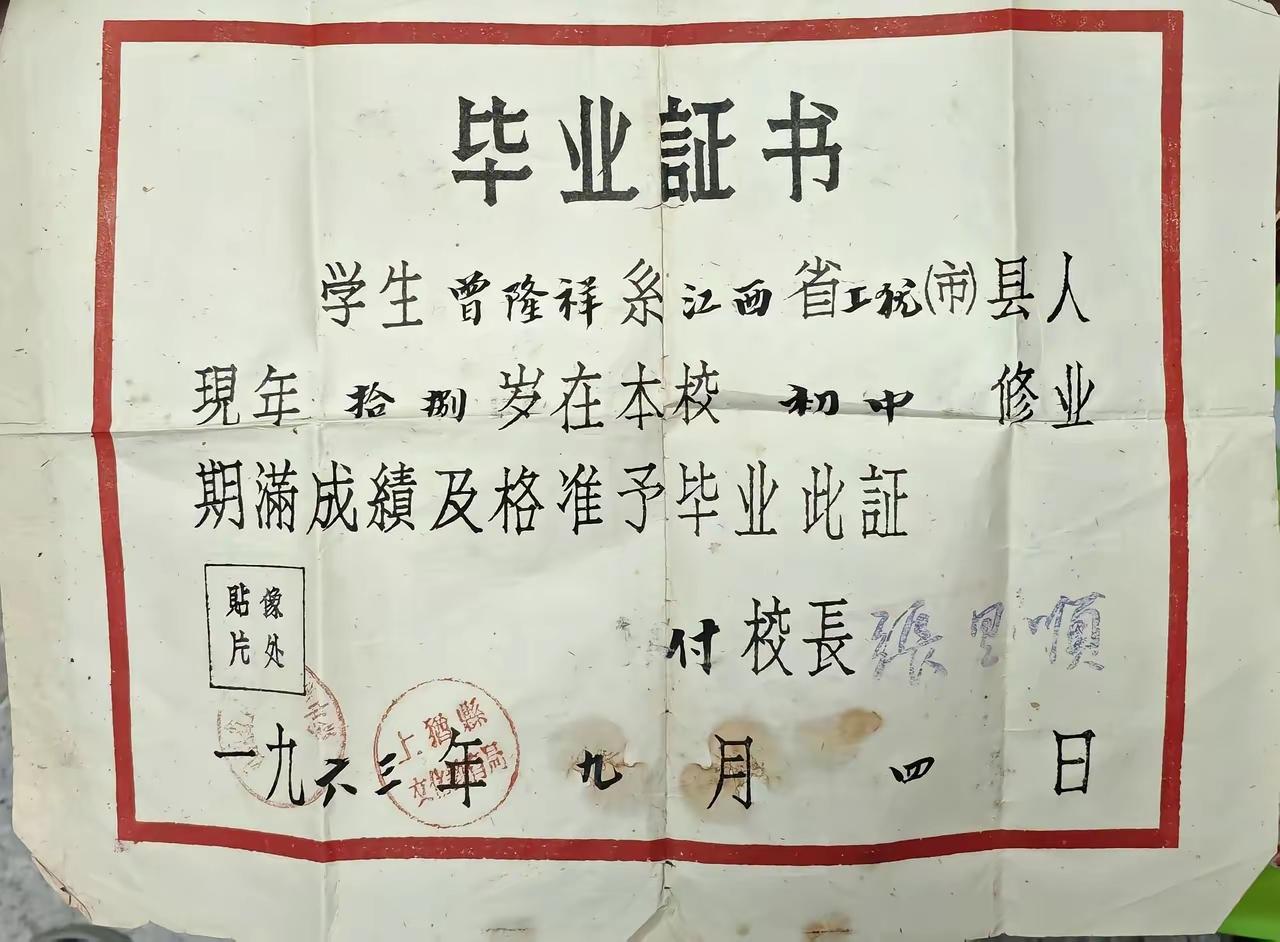 毕业証书
学生曾隆祥系江西省上犹(市)县人
現年拾捌岁在本校初中修业
期滿成績及格准予毕业此証
貼像
片处
付校長張 順
一九六三年九月四日
上猶縣
文化 局